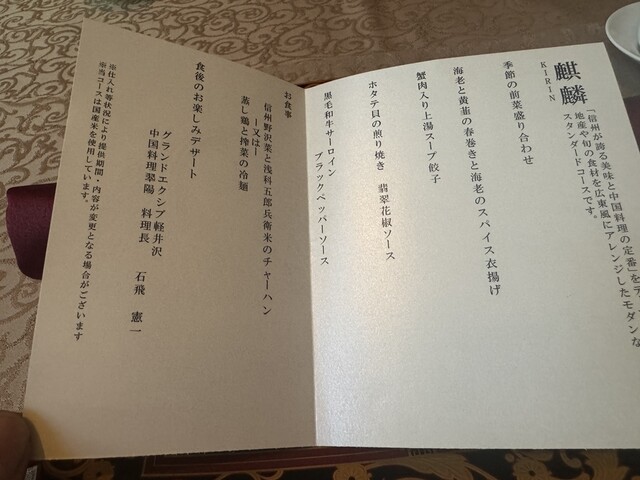 麒麟
KIRIN
「信州が誇る美味と中国料理の定番」をテ
地産や旬の食材を広東風にアレンジしたモダンな
スタンダードコースです。
季節の前菜盛り合わせ
海老と黄韮の春巻きと海老のスパイス衣揚げ
蟹肉入り上湯スープ餃子
ホタテ貝の煎り焼き 翡翠花椒ソース
黒毛和牛サーロイン
ブラックペッパーソース
お食事
信州野沢菜と浅科五郎兵衛米のチャーハン
―又は―
蒸し鶏と搾菜の冷麺
食後のお楽しみデザート
グランドエクシブ軽井沢
中国料理翠陽 料理長 石飛 憲一
※仕入れ等状況により提供期間、内容が変更となる場合がございます
※当コースは国産米を使用しています。